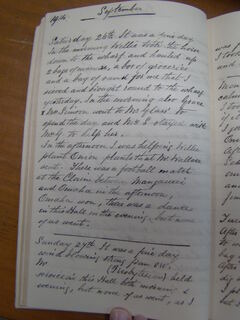 1914 September
Saturday 26th It was a fine day
In the morning Willie took the horse
down to the wharf and hauled up
2 bags manure, a box of groceries
and a bag of onions for me that I
received and brought round to the wharf
yesterday. In the morning also Grace
& Mrs Simson went to Mrs Glass' to
spend the day and Mrs S stayed with
Mrs G to help her.
In the afternoon I was helping Willie
plant Onion plants that Mr Wallace
sent. There was a football match
at the Claim between Mangawai
and Omaha in the afternoon,
Omaha won, there was a dance
in this Hall in the evening but none
of us went.
Sunday 27th It was a fine day
wind blowing strong from SW.
Mr (Presbyterian) held
services in this Hall both morning &
evening, but none of us went, as I